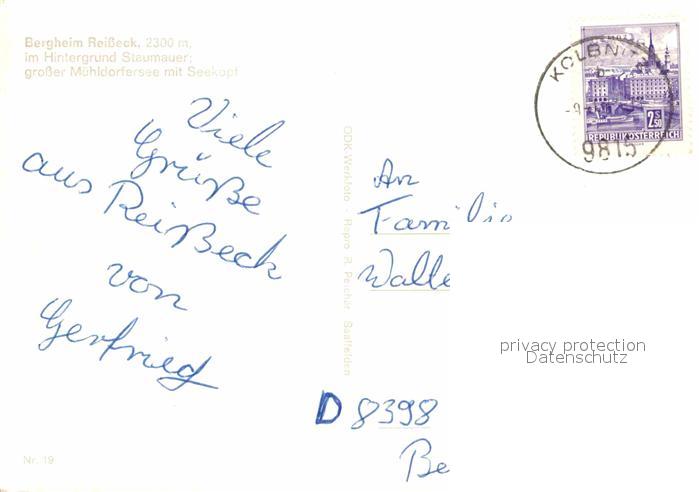 Bergheim Reißeck, 2300 m,
im Hintergrund Staumauer;
großer Mühldorfersee mit Seekopf
Viele
Grüße
aus Reißeck
von
Gerfried
ODK-Werkfoto - Repro R. Perchar Saalfelden
KOLBNITZ
9815
2 S 50
REPUBLIK ÖSTERREICH
An
Familie
Walle
privacy protection
Datenschutz
D 8398
Be
Nr. 19